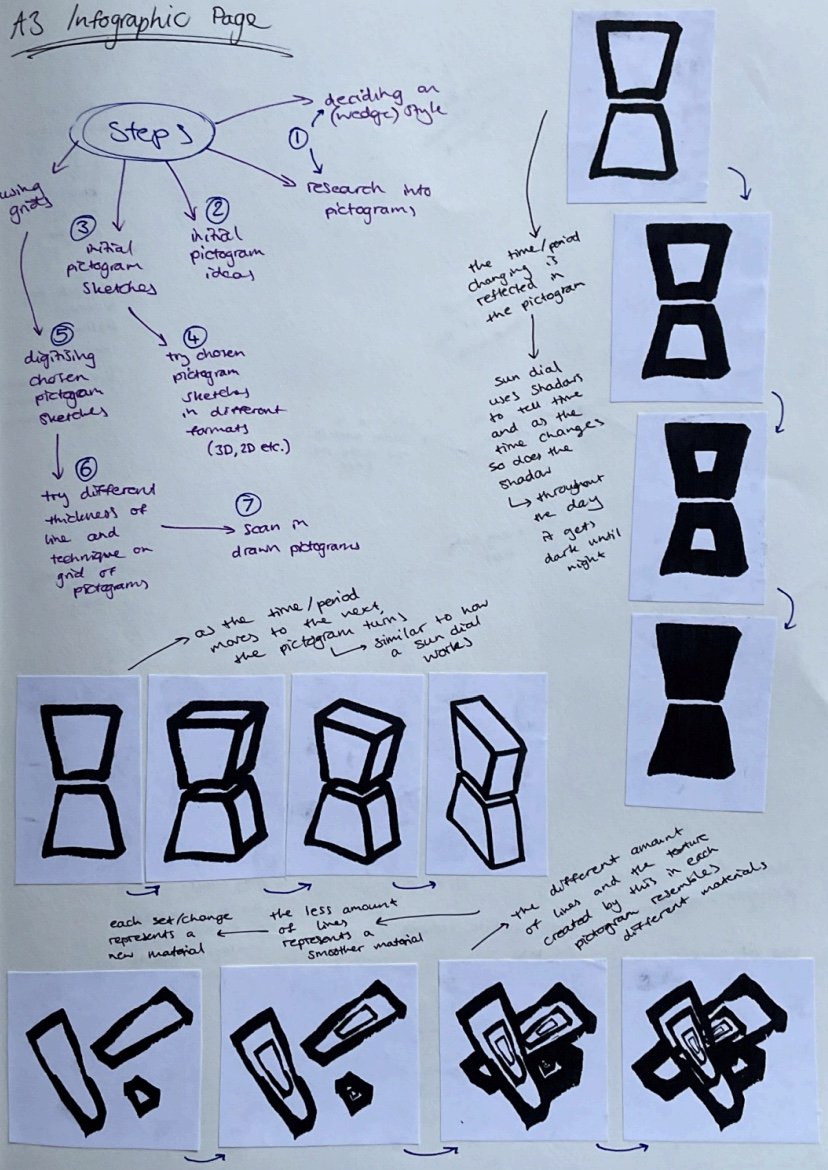 A3 Infographic Page
Steps
deciding on
(wedge) style
①
research into
pictograms
using
grids
②
initial
pictogram
ideas
③
initial
pictogram
sketches
④
try chosen
pictogram
sketches
in different
formats
(3D, 2D etc.)
⑤
digitising
chosen
pictogram
sketches
⑥
try different
thickness of
line and
technique on
grid of
pictograms
⑦
scan in
drawn pictograms
the time/period
changing is
reflected in
the pictogram
sun dial
uses shadows
to tell time
and as the
time changes
so does the
shadow
throughout
the day
it gets
dark until
night
as the time/period
moves to the next,
the pictogram turns
similar to how
a sun dial
works
the different amount
of lines and the texture
created by this in each
pictogram resembles
different materials
the less amount
of lines
represents a
smoother material
each set/change
represents a
new material